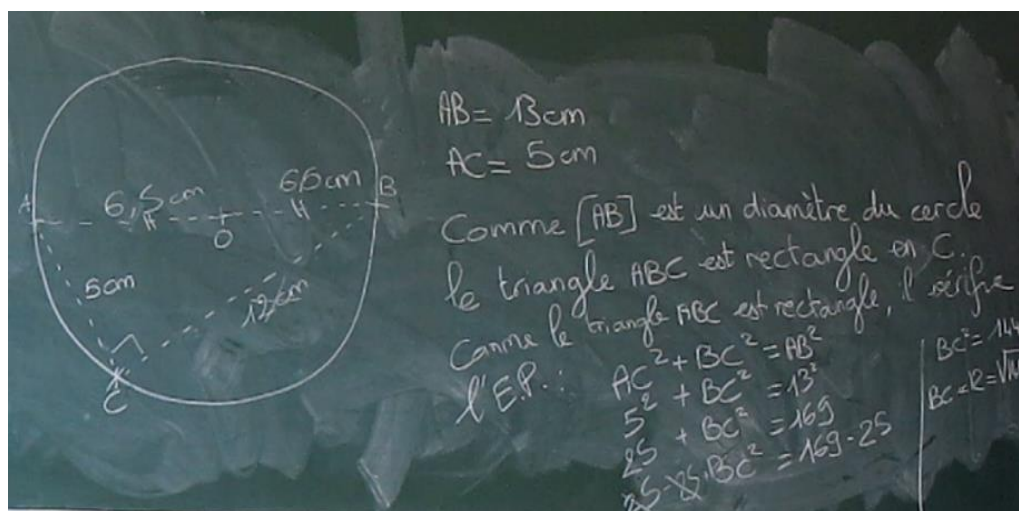 A
6,5 cm
6,5 cm
B
O
5 cm
12 cm
C
AB = 13 cm
AC = 5 cm
Comme [AB] est un diamètre du cercle
le triangle ABC est rectangle en C.
Comme le triangle ABC est rectangle, il vérifie
l'E.P. : AC² + BC² = AB²
5² + BC² = 13²
25 + BC² = 169
25 - 25 + BC² = 169 - 25
BC² = 144
BC = 12 =